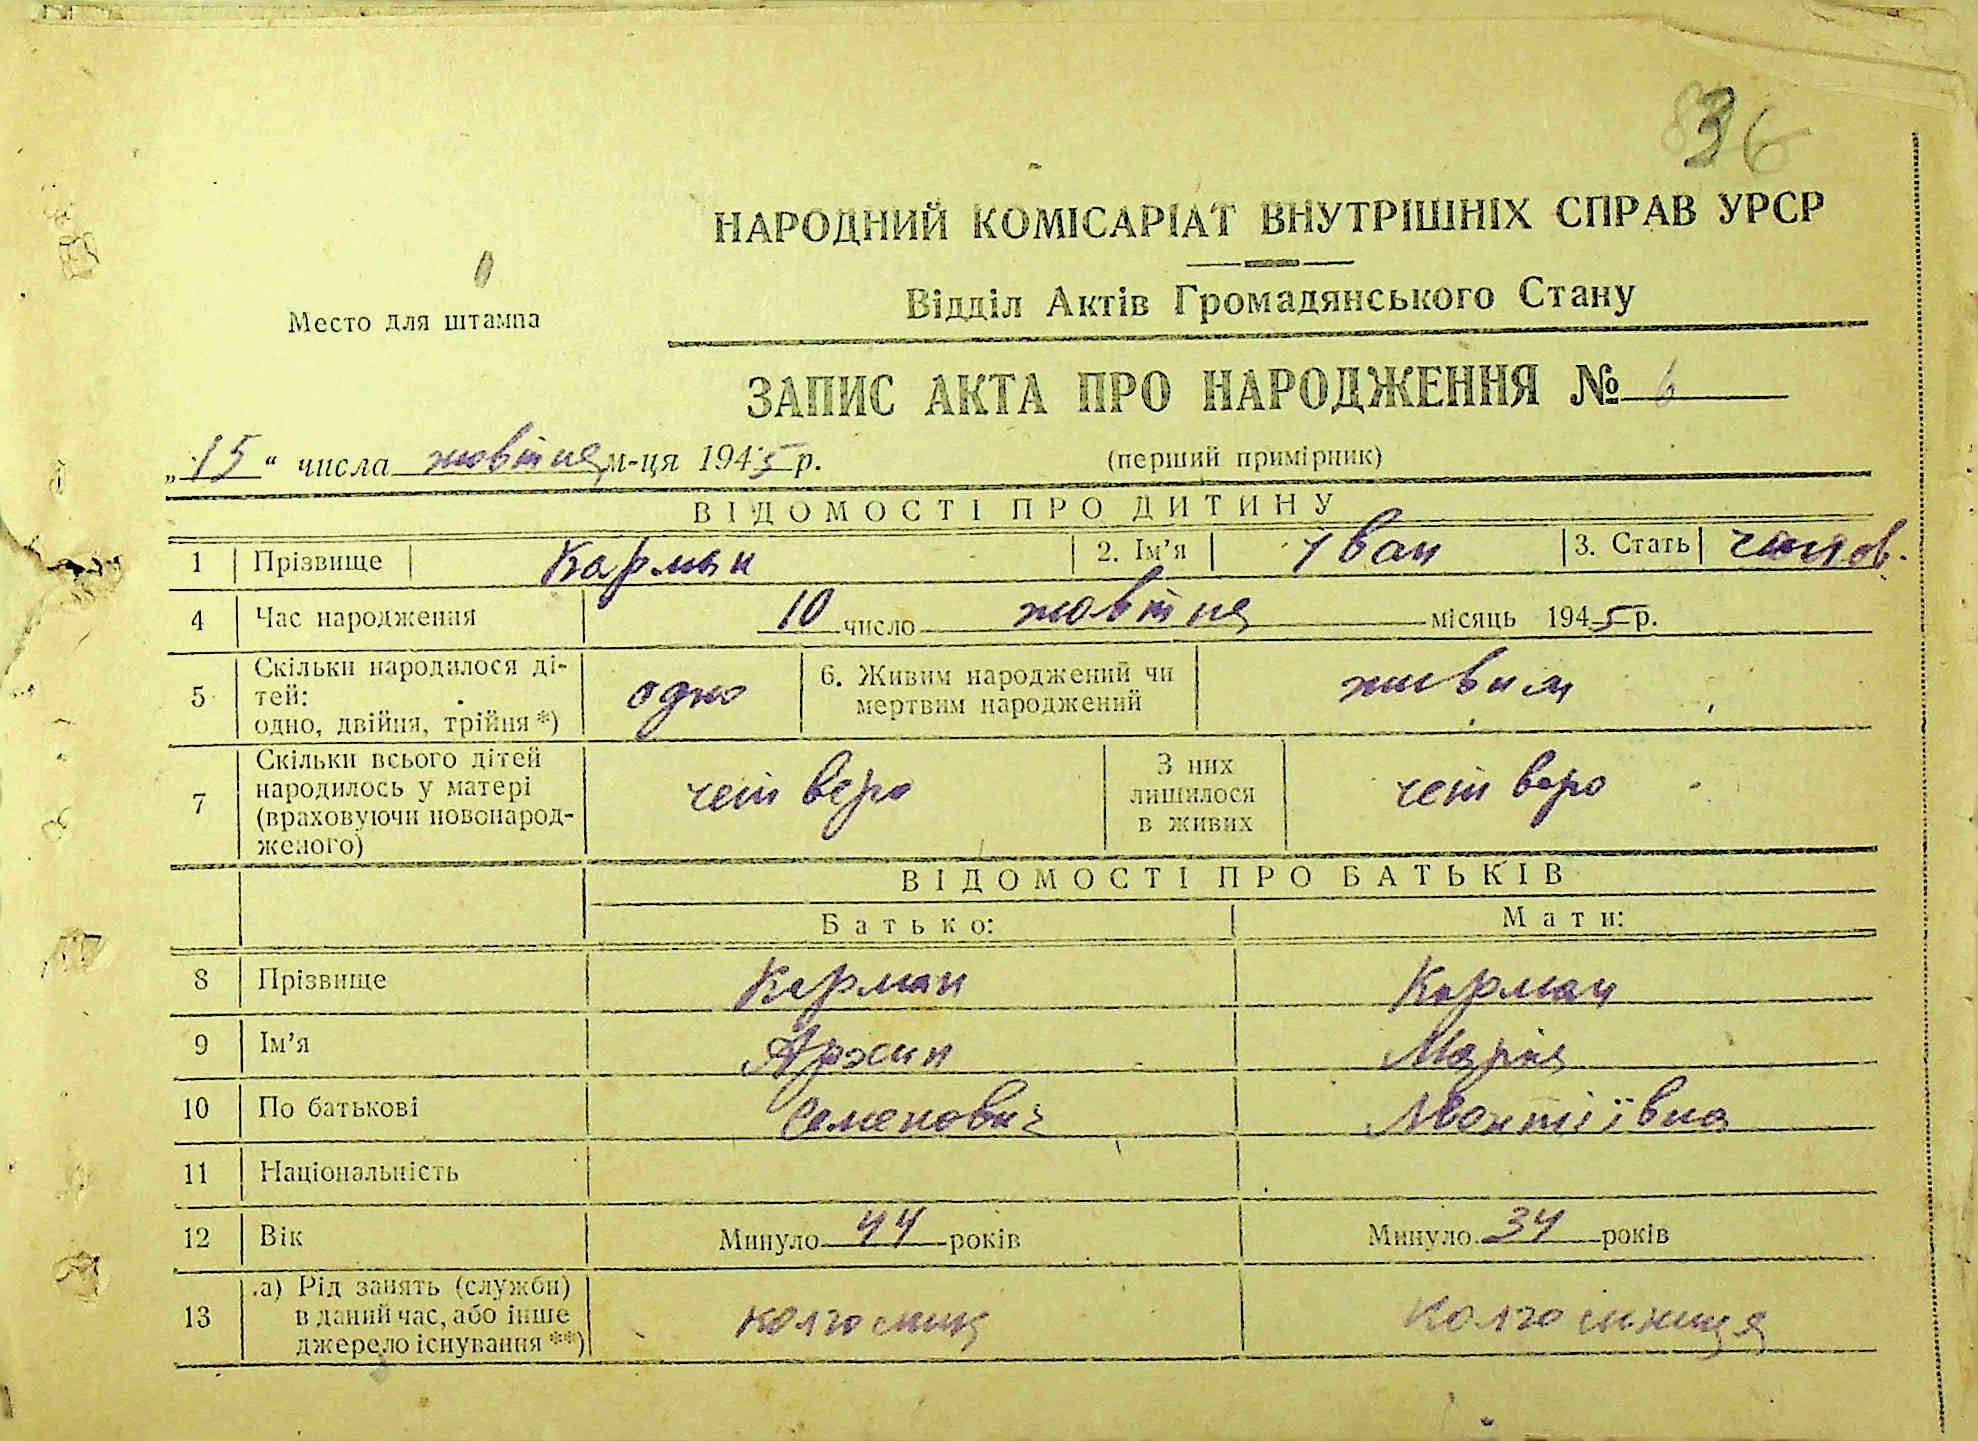 36
НАРОДНИЙ КОМІСАРІАТ ВНУТРІШНІХ СПРАВ УРСР
Відділ Актів Громадянського Стану
Место для штампа
ЗАПИС АКТА ПРО НАРОДЖЕННЯ № 6
„15“ числа жовтня м-ця 1945 р. (перший примірник)
ВІДОМОСТІ ПРО ДИТИНУ
1 Прізвище Карман 2. Ім’я Іван 3. Стать чолов.
4 Час народження 10 число жовтня місяць 1945 р.
5 Скільки народилося ді-
тей:
одно, двійня, трійня *) одно 6. Живим народжений чи
мертвим народжений живим
7 Скільки всього дітей
народилось у матері
(враховуючи новонарод-
женого) четверо З них
лишилося
в живих четверо
ВІДОМОСТІ ПРО БАТЬКІВ
Батько: Мати:
8 Прізвище Карман Карман
9 Ім’я Марія
10 По батькові Семенович
11 Національність
12 Вік Минуло 44 років Минуло 34 років
13 а) Рід занять (служби)
в даний час, або інше
джерело існування **) колгоспник колгоспниця